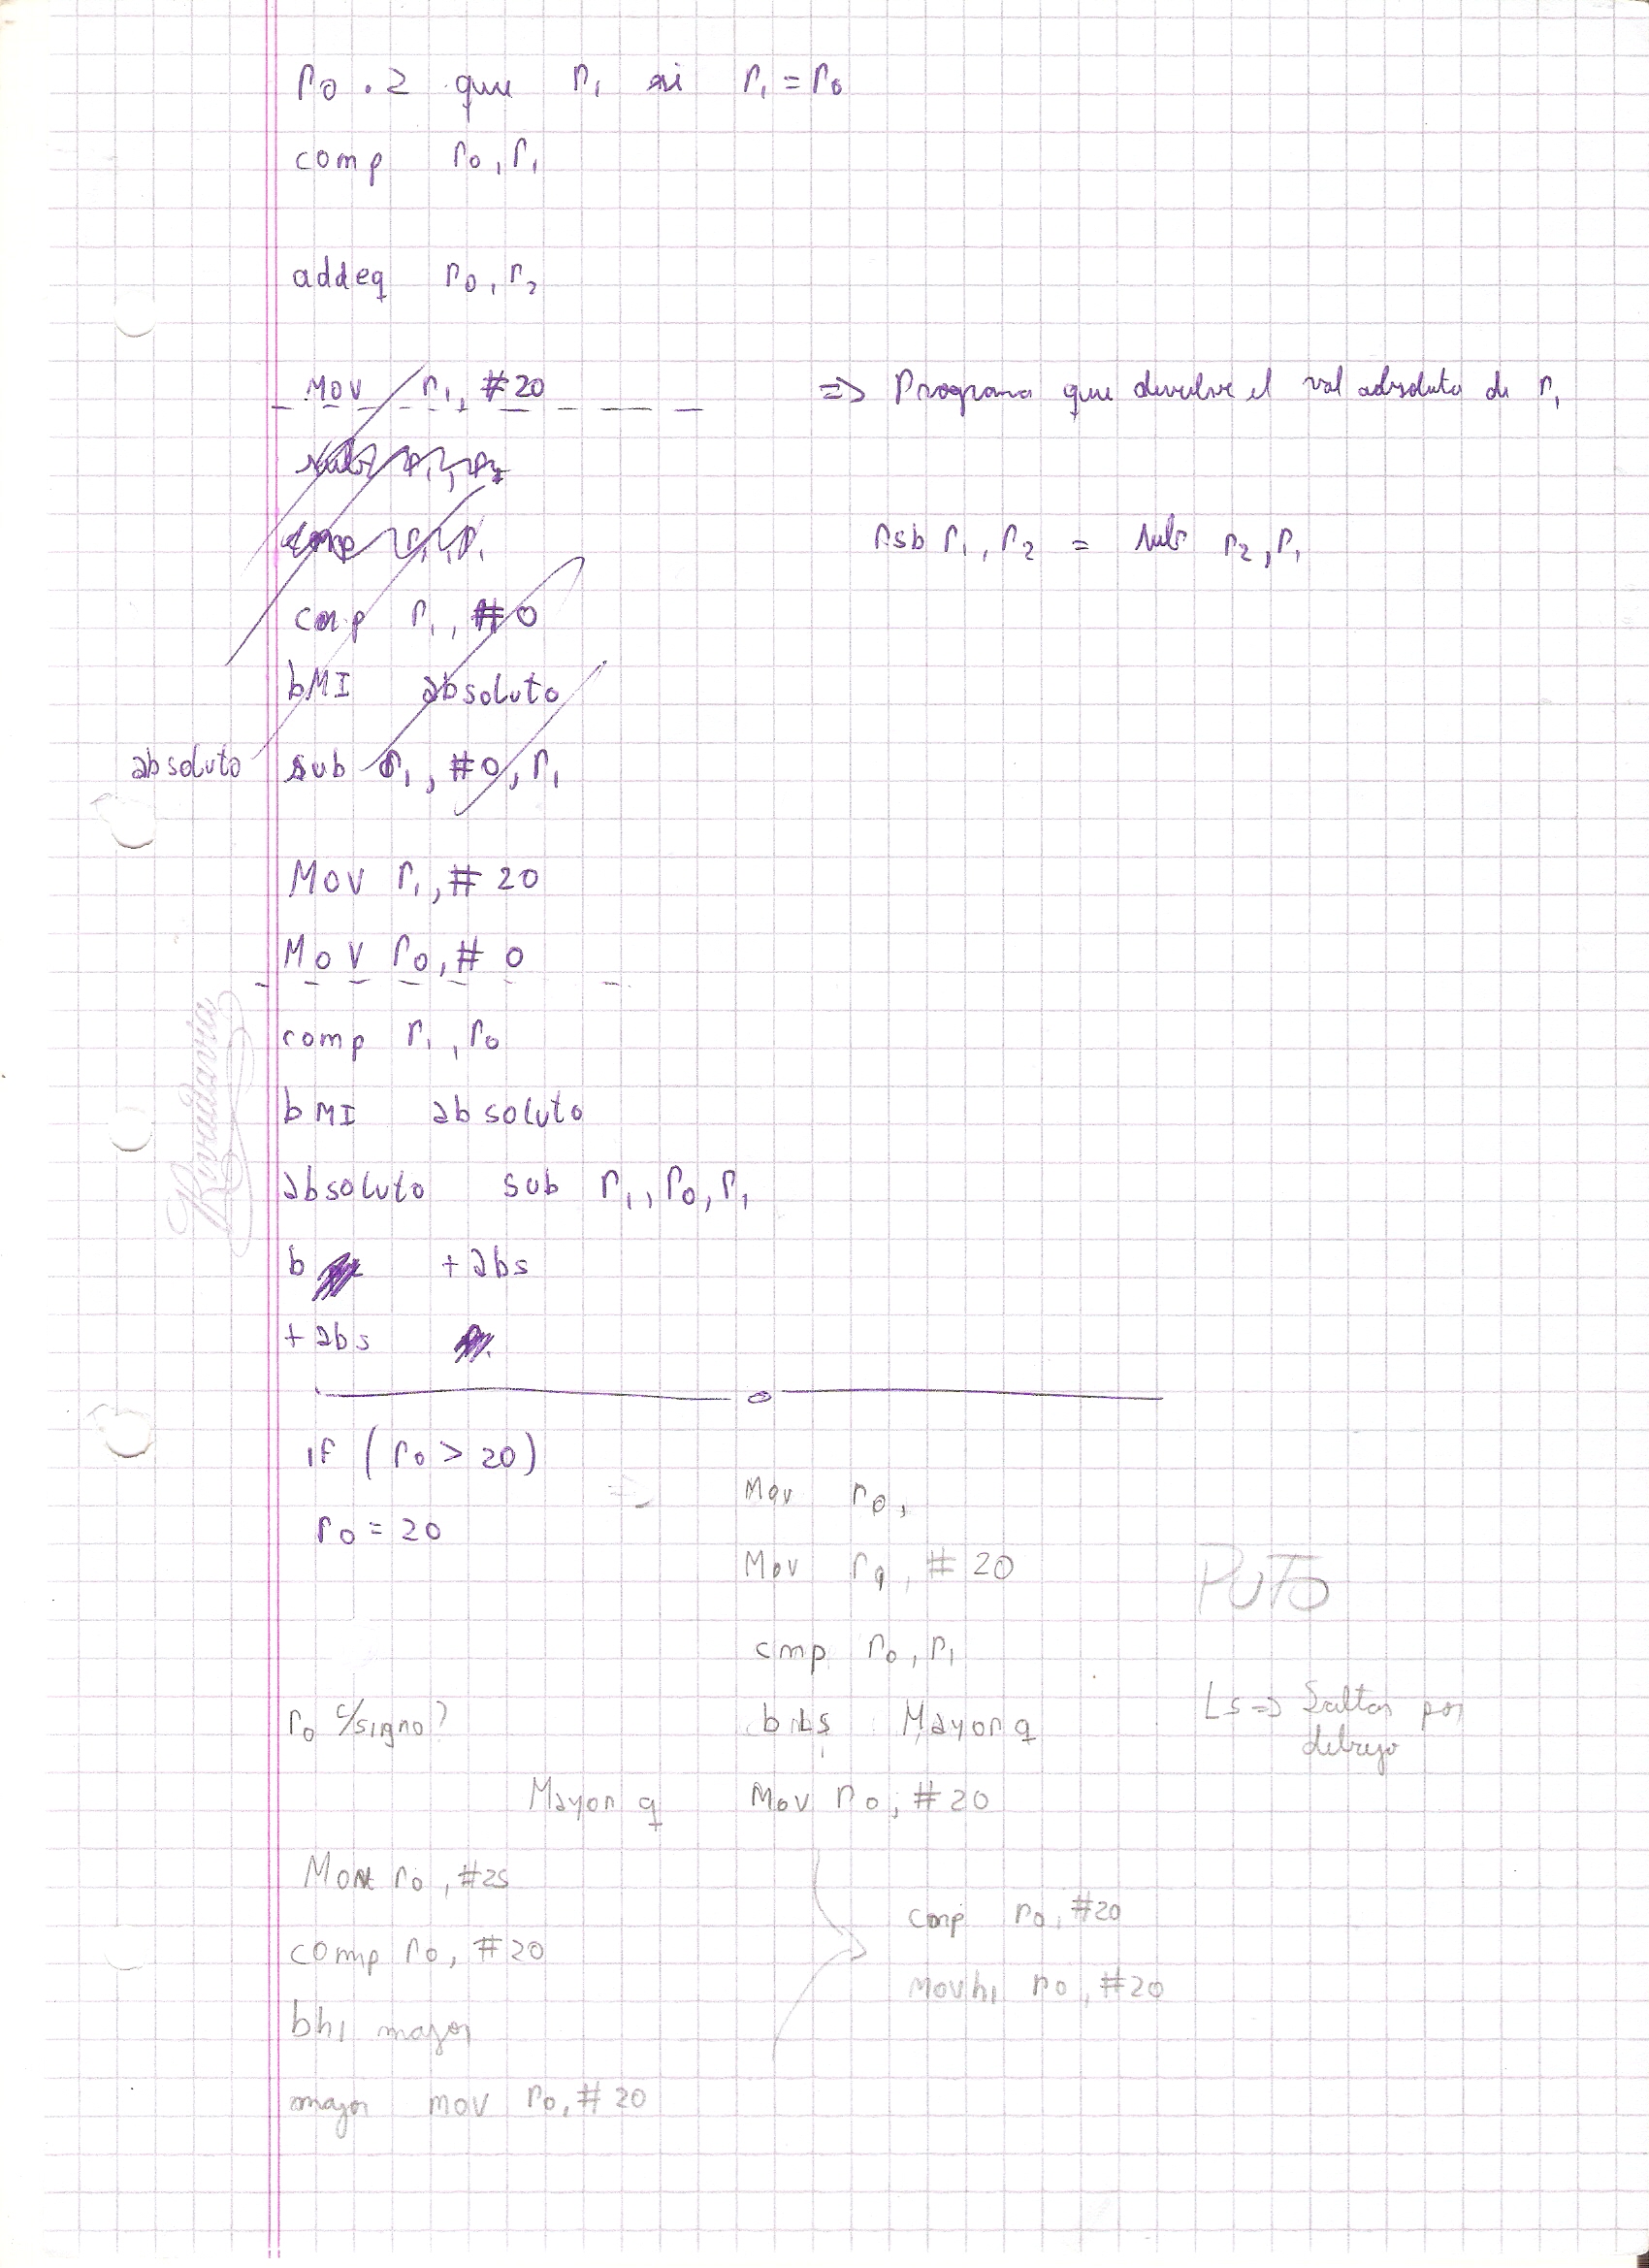 r0 . 2 que r1 si r1 = r0
comp r0, r1
addeq r0, r2
MOV r1, #20 => Programa que devuelve el val absoluto de r1
rsb r1, r2 = sub r2, r1
comp r1, #0
bMI absoluto
absoluto sub r1, #0, r1
Mov r1, #20
Mov r0, #0
comp r1, r0
bMI absoluto
absoluto sub r1, r0, r1
b +abs
+abs
if (r0 > 20)
r0 = 20
Mov r0,
Mov r1, #20
PUTO
cmp r0, r1
r0 c/signo? bLs Mayor q
Ls => Saltar por debajo
Mayor q Mov r0, #20
Mov r0, #25
comp r0, #20
bhi mayor
mayor mov r0, #20
comp r0, #20
Movhi r0, #20
Rivadavia